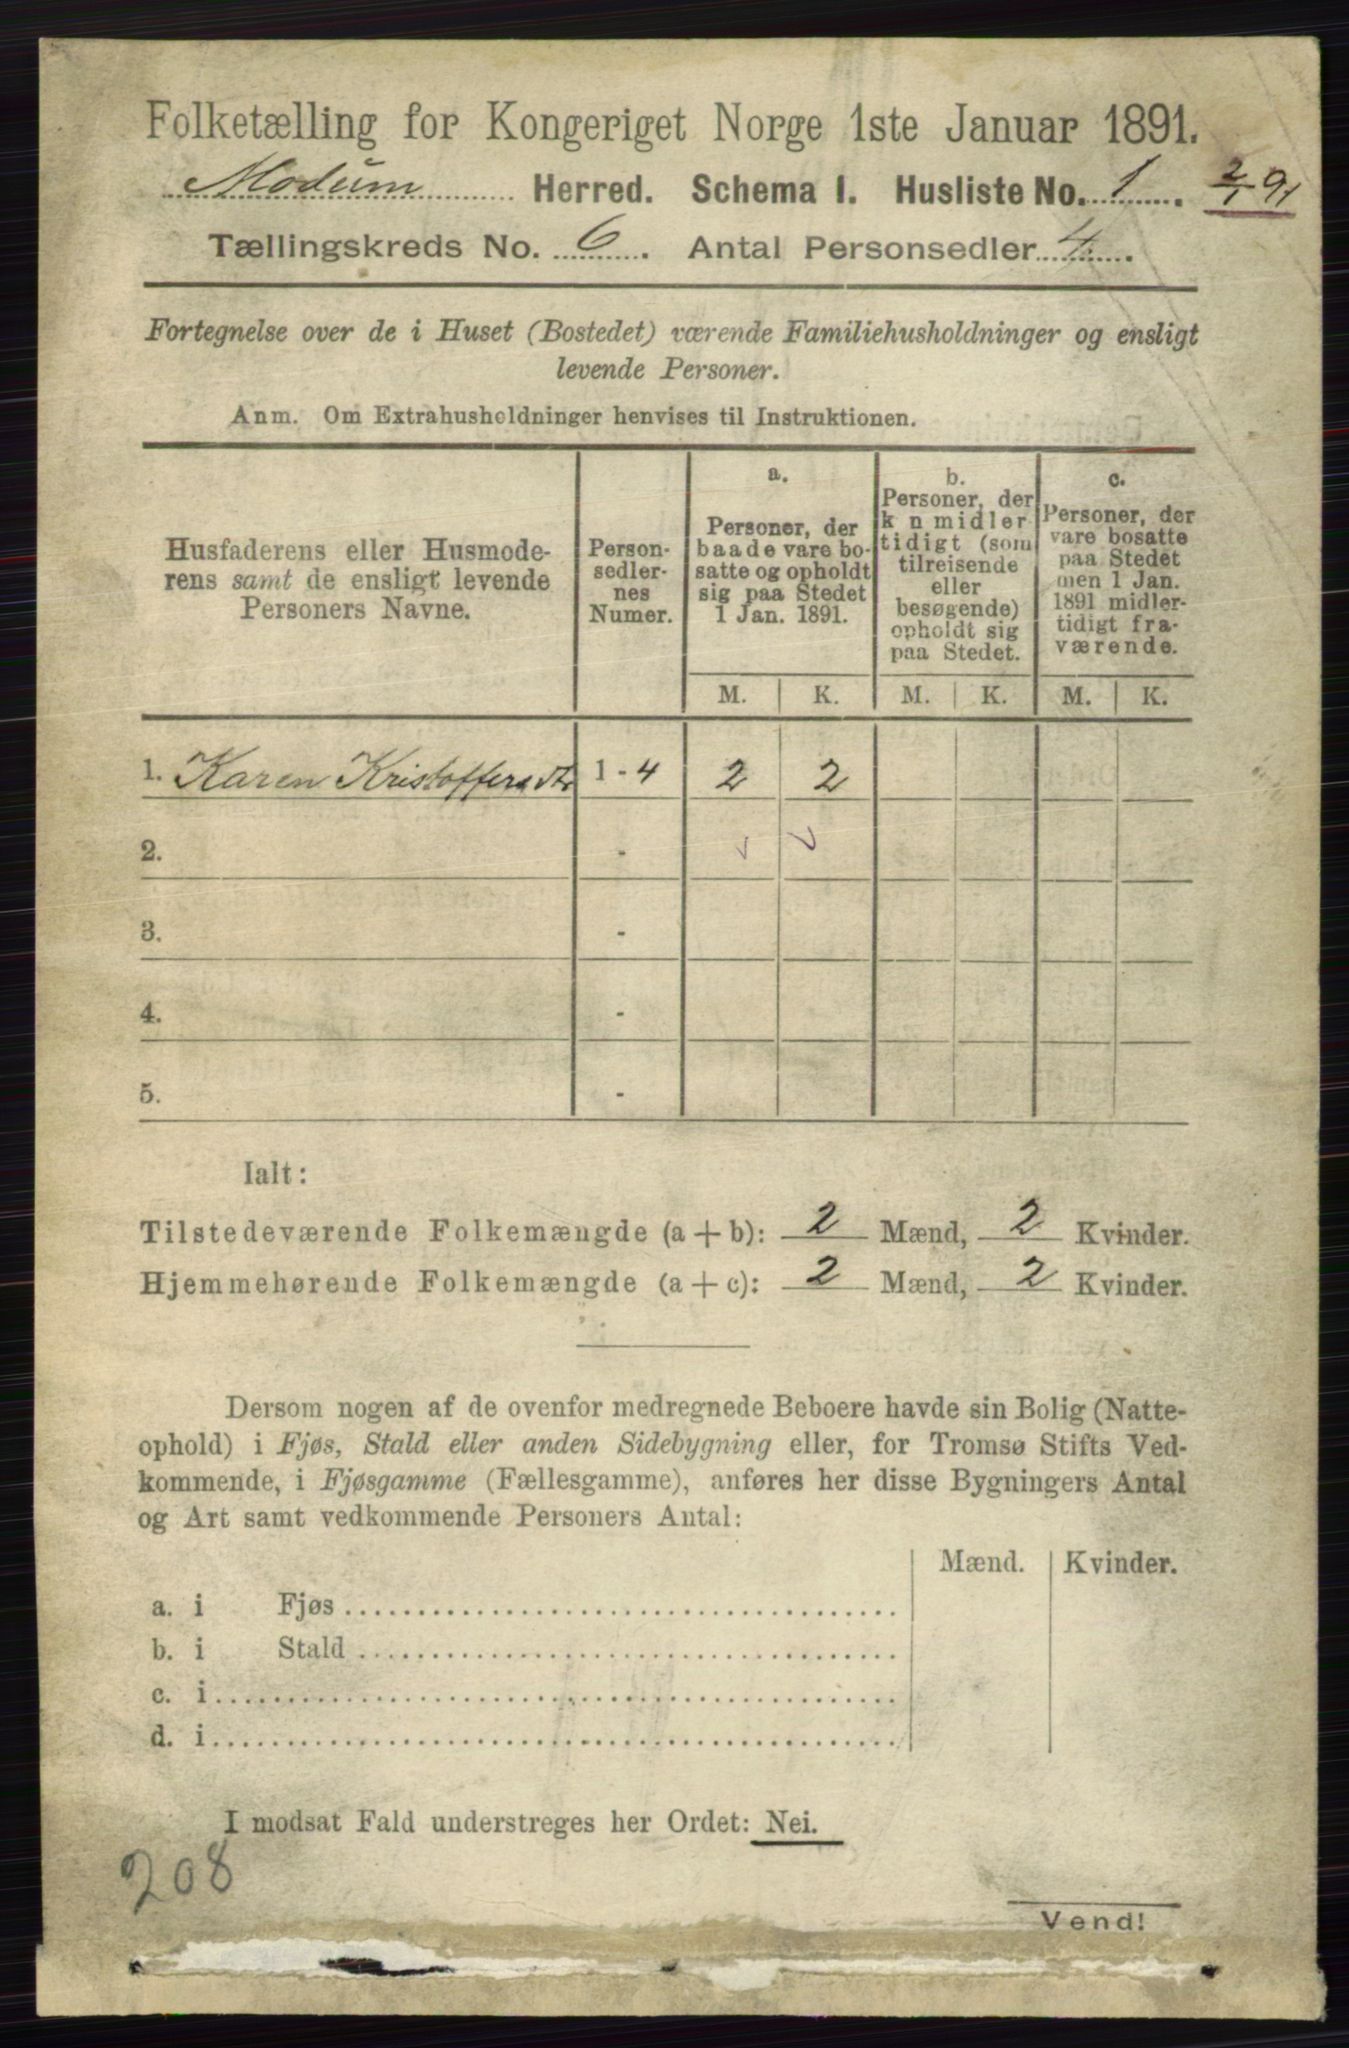 Folketælling for Kongeriget Norge 1ste Januar 1891.
Modum Herred. Schema I. Husliste No. 1. 2/1 91
Tællingskreds No. 6. Antal Personsedler 4.
Fortegnelse over de i Huset (Bostedet) værende Familiehusholdninger og ensligt
levende Personer.
Anm. Om Extrahusholdninger henvises til Instruktionen.
Husfaderens eller Husmode-
rens samt de ensligt levende
Personers Navne.
Person-
sedler-
nes
Numer.
a.
Personer, der
baade vare bo-
satte og opholdt
sig paa Stedet
1 Jan. 1891.
b.
Personer, der
k n midler
tidigt (som
tilreisende
eller
besøgende)
opholdt sig
paa Stedet.
c.
Personer, der
vare bosatte
paa Stedet
men 1 Jan.
1891 midler-
tidigt fra-
værende.
M. K. M. K. M. K.
1. Karen Kristoffersdtr 1 - 4 2 2
2. -
3. -
4. -
5. -
Ialt:
Tilstedeværende Folkemængde (a + b): 2 Mænd, 2 Kvinder.
Hjemmehørende Folkemængde (a + c): 2 Mænd, 2 Kvinder.
Dersom nogen af de ovenfor medregnede Beboere havde sin Bolig (Natte-
ophold) i Fjøs, Stald eller anden Sidebygning eller, for Tromsø Stifts Ved-
kommende, i Fjøsgamme (Fællesgamme), anføres her disse Bygningers Antal
og Art samt vedkommende Personers Antal:
Mænd. Kvinder.
a. i Fjøs
b. i Stald
c. i
d. i
I modsat Fald understreges her Ordet: Nei.
208
Vend!